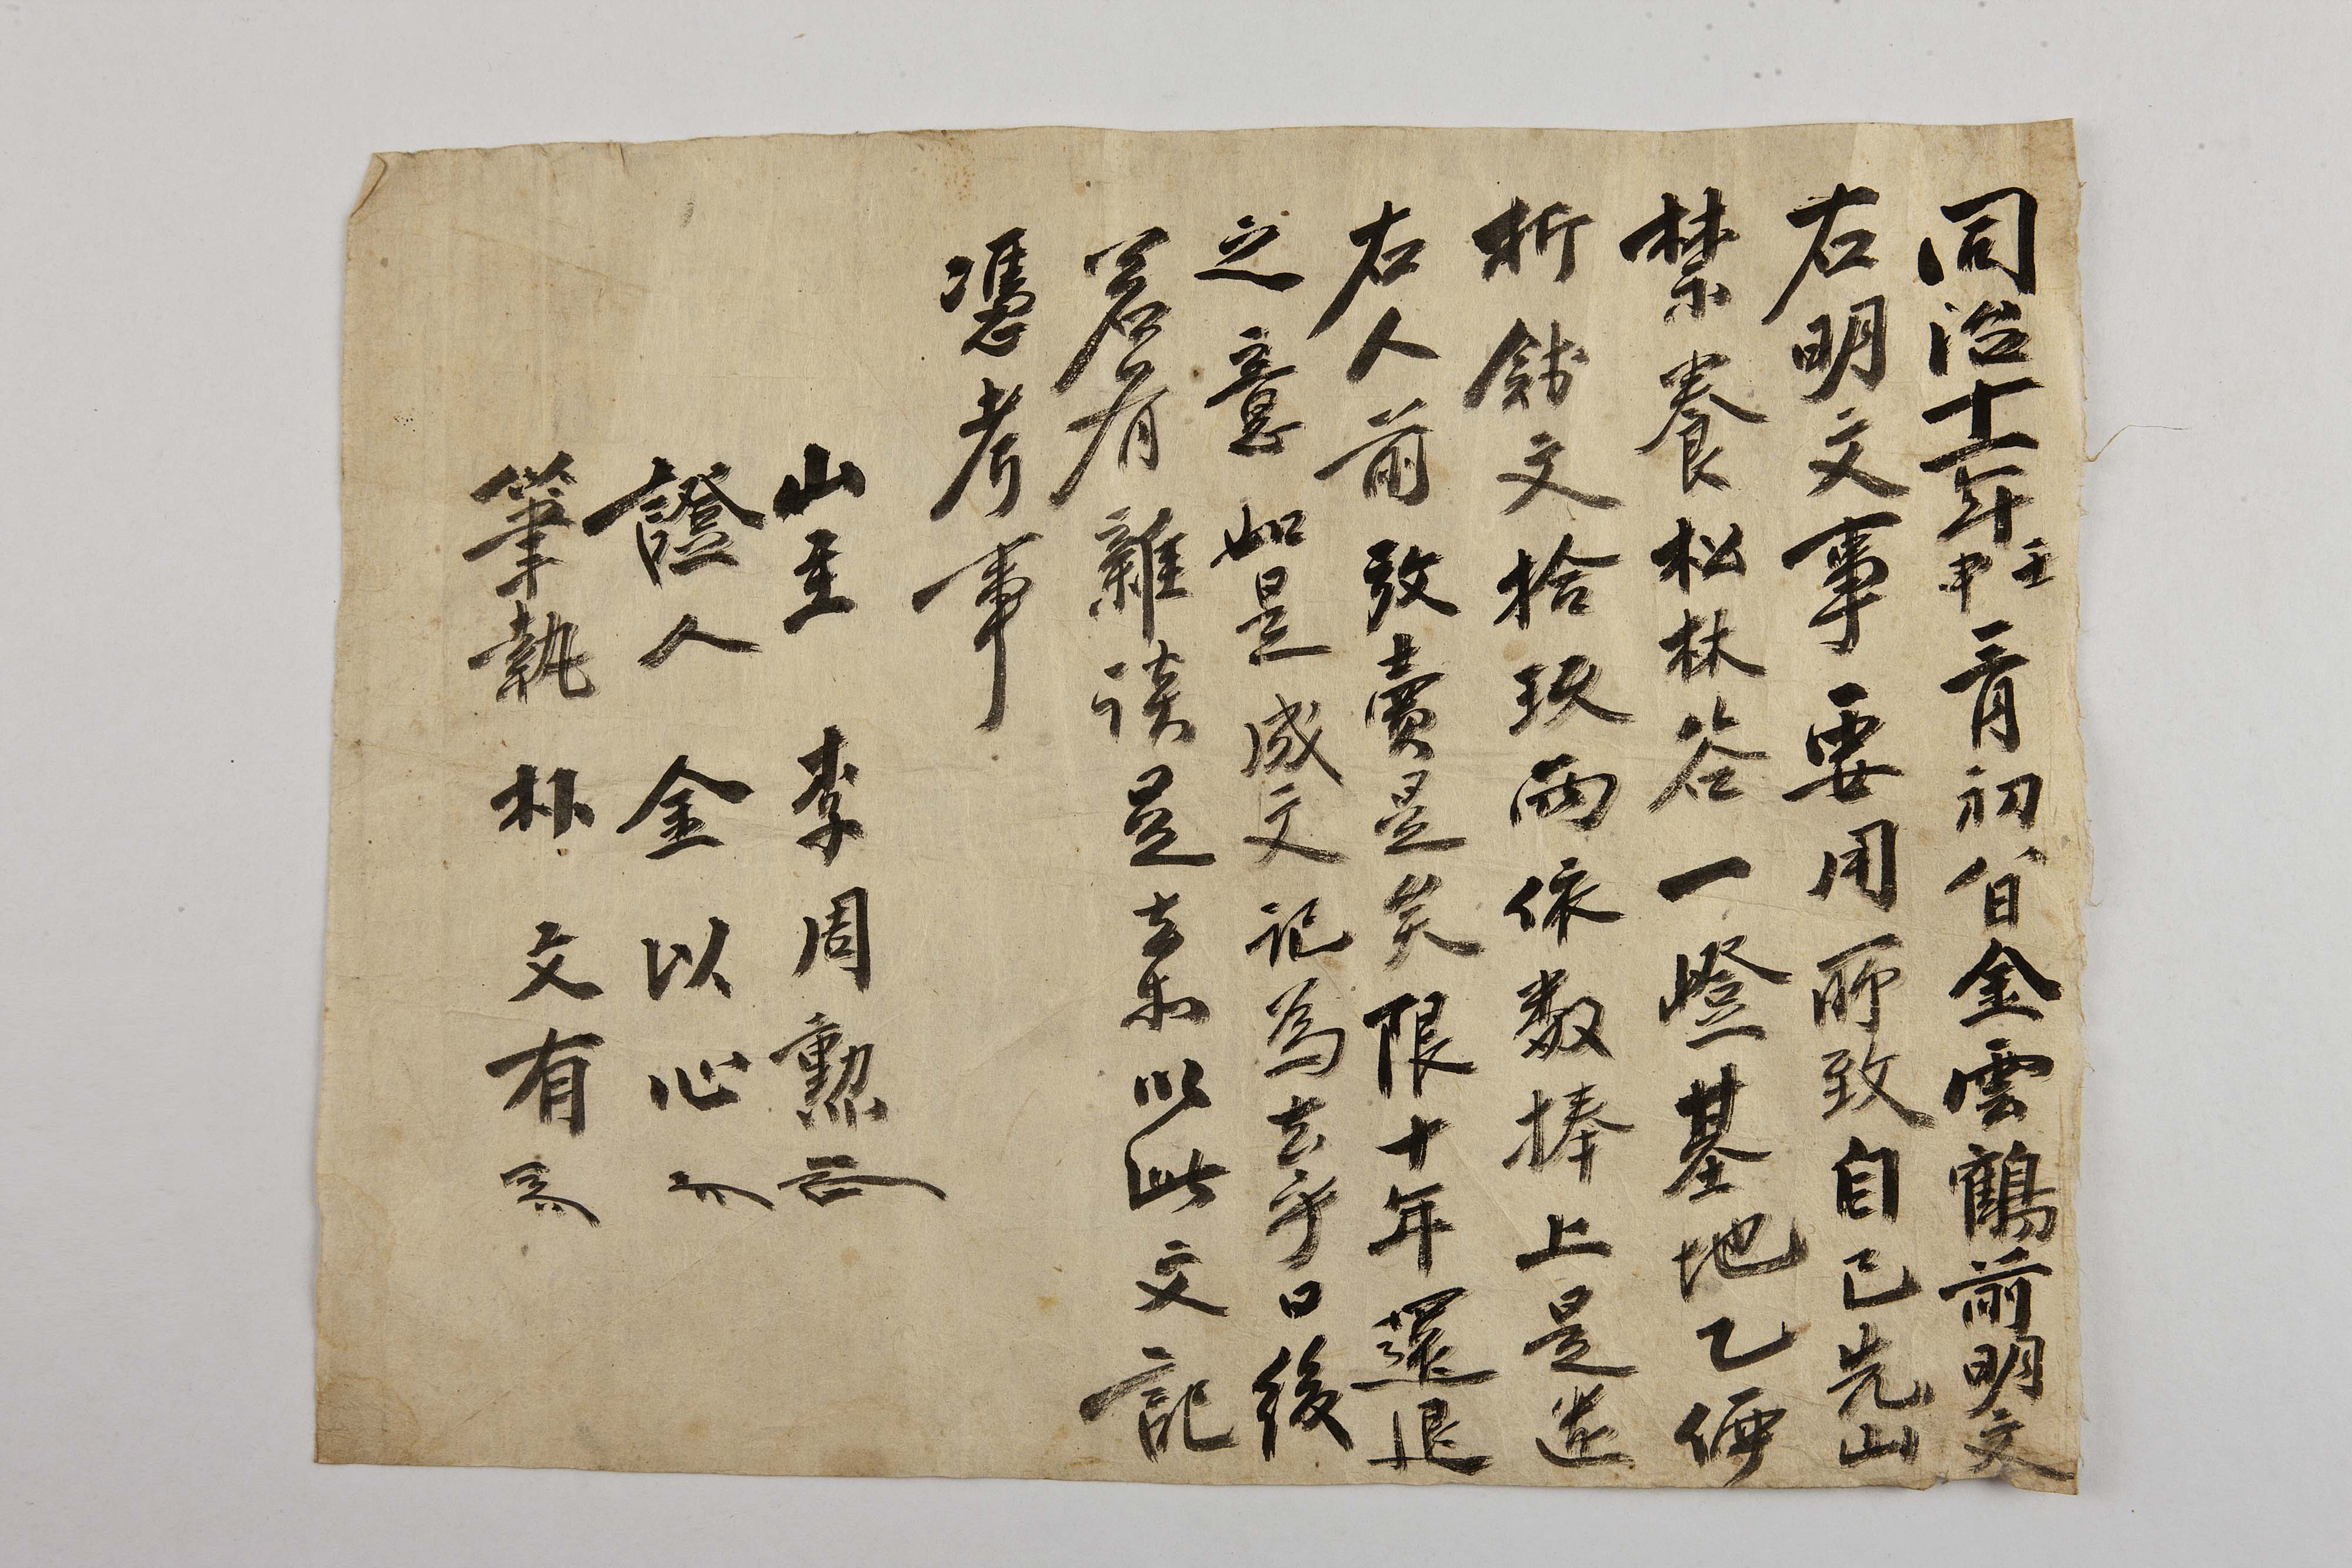 同治十一年壬申二月初八日金雲鶴前明文
右明文事要用所致自己先山
禁養松林谷一嶝基地乙㐣
折錢文拾玖兩依數捧上是遣
右人前放賣是矣限十年還退
之意如是成文記爲去乎日後
若有雜談是去乃以此文記
憑考事
山主 李周勲
證人 金以心
筆執 朴文有